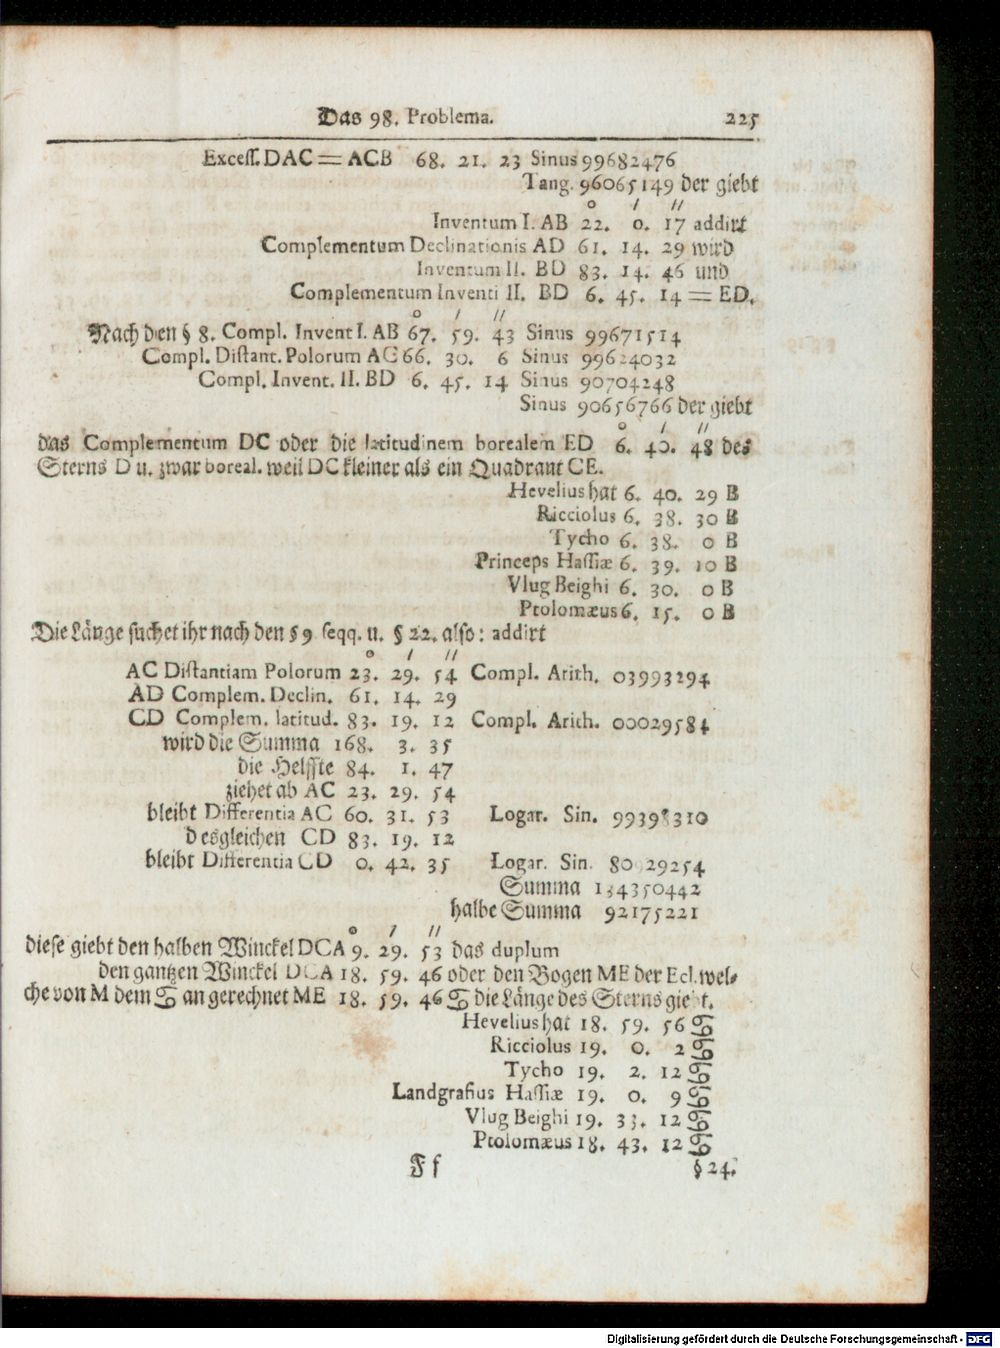 Das 98. Problema. 225
Excess. DAC = ACB 68. 21. 23 Sinus 99682476
Tang. 96065149 der giebt
° ′ ″
Inventum I. AB 22. 0. 17 addirt
Complementum Declinationis AD 61. 14. 29 wird
Inventum II. BD 83. 14. 46 und
Complementum Inventi II. BD 6. 45. 14 = ED.
° ′ ″
Nach den § 8. Compl. Invent I. AB 67. 59. 43 Sinus 99671514
Compl. Distant. Polorum AC 66. 30. 6 Sinus 99624032
Compl. Invent. II. BD 6. 45. 14 Sinus 90704248
Sinus 90656766 der giebt
° ′ ″
das Complementum DC oder die latitudinem borealem ED 6. 40. 48 des
Sterns D u. zwar boreal. weil DC kleiner als ein Quadrant CE.
Hevelius hat 6. 40. 29 B
Ricciolus 6. 38. 30 B
Tycho 6. 38. 0 B
Princeps Hassiæ 6. 39. 10 B
Vlug Beighi 6. 30. 0 B
Ptolomæus 6. 15. 0 B
Die Länge suchet ihr nach den § 9 seqq. u. § 22. also: addirt
° ′ ″
AC Distantiam Polorum 23. 29. 54 Compl. Arith. 03993294
AD Complem. Declin. 61. 14. 29
CD Complem. latitud. 83. 19. 12 Compl. Arith. 00029584
wird die Summa 168. 3. 35
die Helffte 84. 1. 47
ziehet ab AC 23. 29. 54
bleibt Differentia AC 60. 31. 53 Logar. Sin. 99398310
desgleichen CD 83. 19. 12
bleibt Differentia CD 0. 42. 35 Logar. Sin. 80929254
Summa 184350442
halbe Summa 92175221
° ′ ″
diese giebt den halben Winckel DCA 9. 29. 53 das duplum
den gantzen Winckel DCA 18. 59. 46 oder den Bogen ME der Ecl. wel-
che von M dem ♋ an gerechnet ME 18. 59. 46 ♋ die Länge des Sterns giebt.
Hevelius hat 18. 59. 56 ♋
Ricciolus 19. 0. 2 ♋
Tycho 19. 2. 12 ♋
Landgrafius Hassiæ 19. 0. 9 ♋
Vlug Beighi 19. 33. 12 ♋
Ptolomæus 18. 43. 12 ♋
Ff § 24.
Digitalisierung gefördert durch die Deutsche Forschungsgemeinschaft - DFG